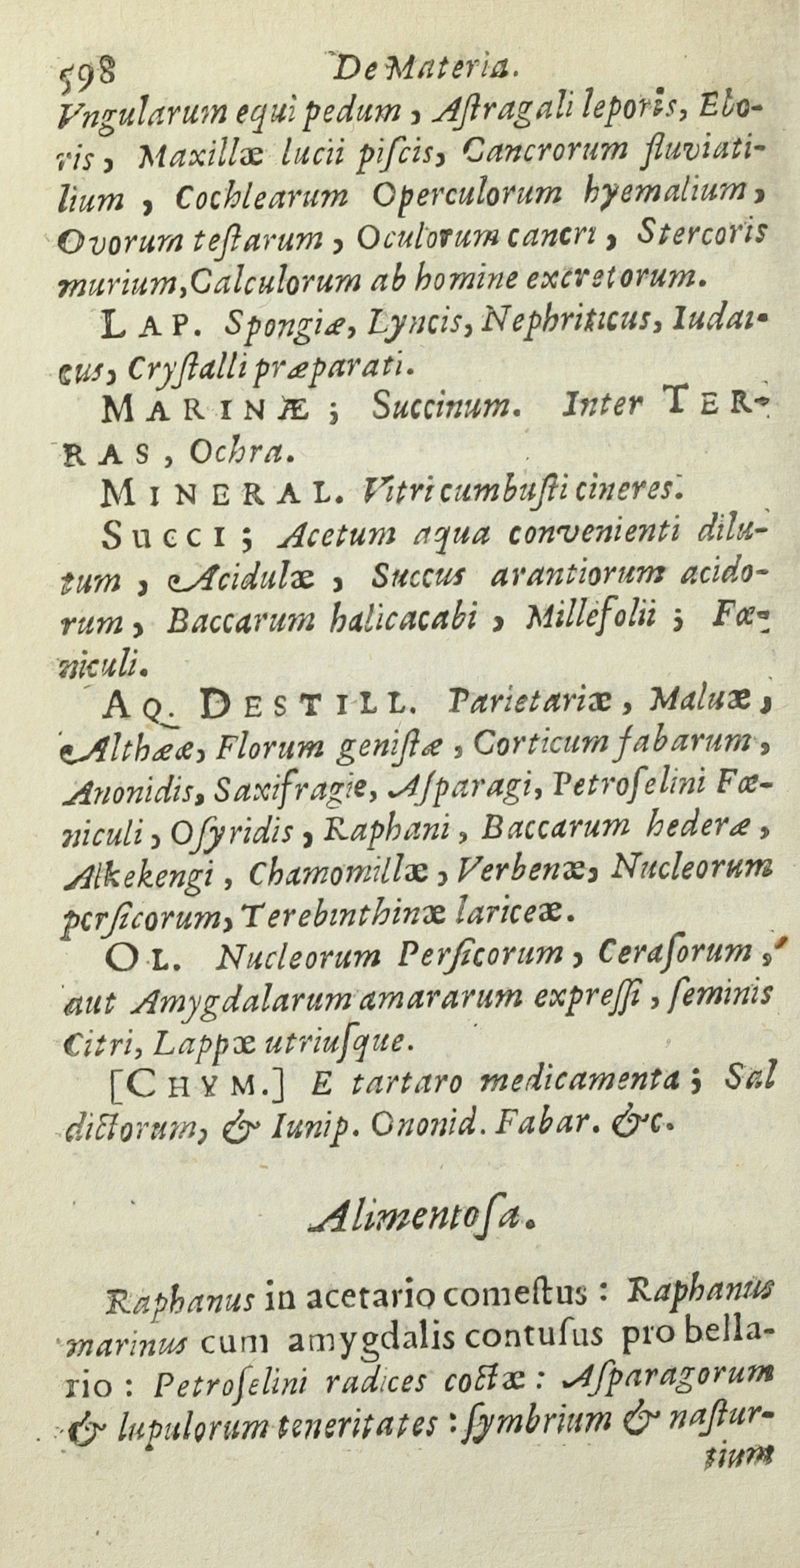 598 De Materia.
Vngularum equi pedum, Aſtragali leporis, Ebo-
ris, Maxillæ lucii piſcis, Cancrorum fluviati-
lium, Cochlearum Operculorum hyemalium,
Ovorum teſtarum, Oculorum cancri, Stercoris
murium, Calculorum ab homine excretorum.
LAP. Spongiæ, Lyncis, Nephriticus, Iudai-
cus, Cryſtalli præparati.
MARINÆ; Succinum. Inter TER-
RAS, Ochra.
MINERAL. Vitri cumbuſti cineres.
SUCCI; Acetum aqua convenienti dilu-
tum, Acidulæ, Succus arantiorum acido-
rum, Baccarum halicacabi, Millefolii; Fœ-
niculi.
AQ. DESTILL. Parietariæ, Maluæ,
Althææ, Florum geniſtæ, Corticum fabarum,
Anonidis, Saxifragie, Aſparagi, Petroſelini Fœ-
niculi, Oſyridis, Raphani, Baccarum hederæ,
Alkekengi, Chamomillæ, Verbenæ, Nucleorum
perſicorum, Terebinthinæ lariceæ.
OL. Nucleorum Perſicorum, Ceraſorum,
aut Amygdalarum amararum expreſſi, ſeminis
Citri, Lappæ utriuſque.
[CHYM.] E tartaro medicamenta; Sal
dictorum, & Iunip. Ononid. Fabar. &c.
Alimentoſa.
Raphanus in acetario comeſtus: Raphanus
marinus cum amygdalis contuſus pro bella-
rio: Petroſelini radices coctæ: Aſparagorum
& lupulorum teneritates: ſymbrium & naſtur-
tium